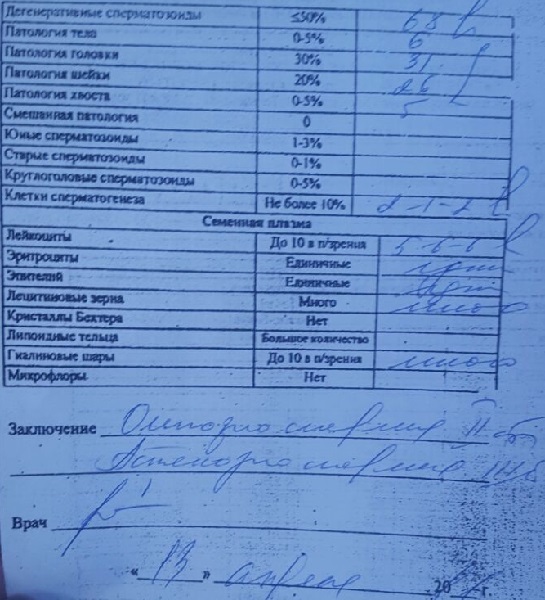 Дегенеративные сперматозоиды ≤50% 68
Патология тела 0-5% 6
Патология головки 30% 31
Патология шейки 20% 26
Патология хвоста 0-5% 5
Смешанная патология 0
Юные сперматозоиды 1-3%
Старые сперматозоиды 0-1%
Круглоголовые сперматозоиды 0-5%
Клетки сперматогенеза Не более 10% 2-1-2
Семенная плазма
Лейкоциты До 10 в п/зрения 5-6-6
Эритроциты Единичные
Эпителий Единичные
Лецитиновые зерна Много много
Кристаллы Бехтера Нет
Липоидные тельца Большое количество
Гиалиновые шары До 10 в п/зрения много
Микрофлоры Нет
Заключение Олигозооспермия II
Астенозооспермия
Врач
« 13 » апреля 20 г.